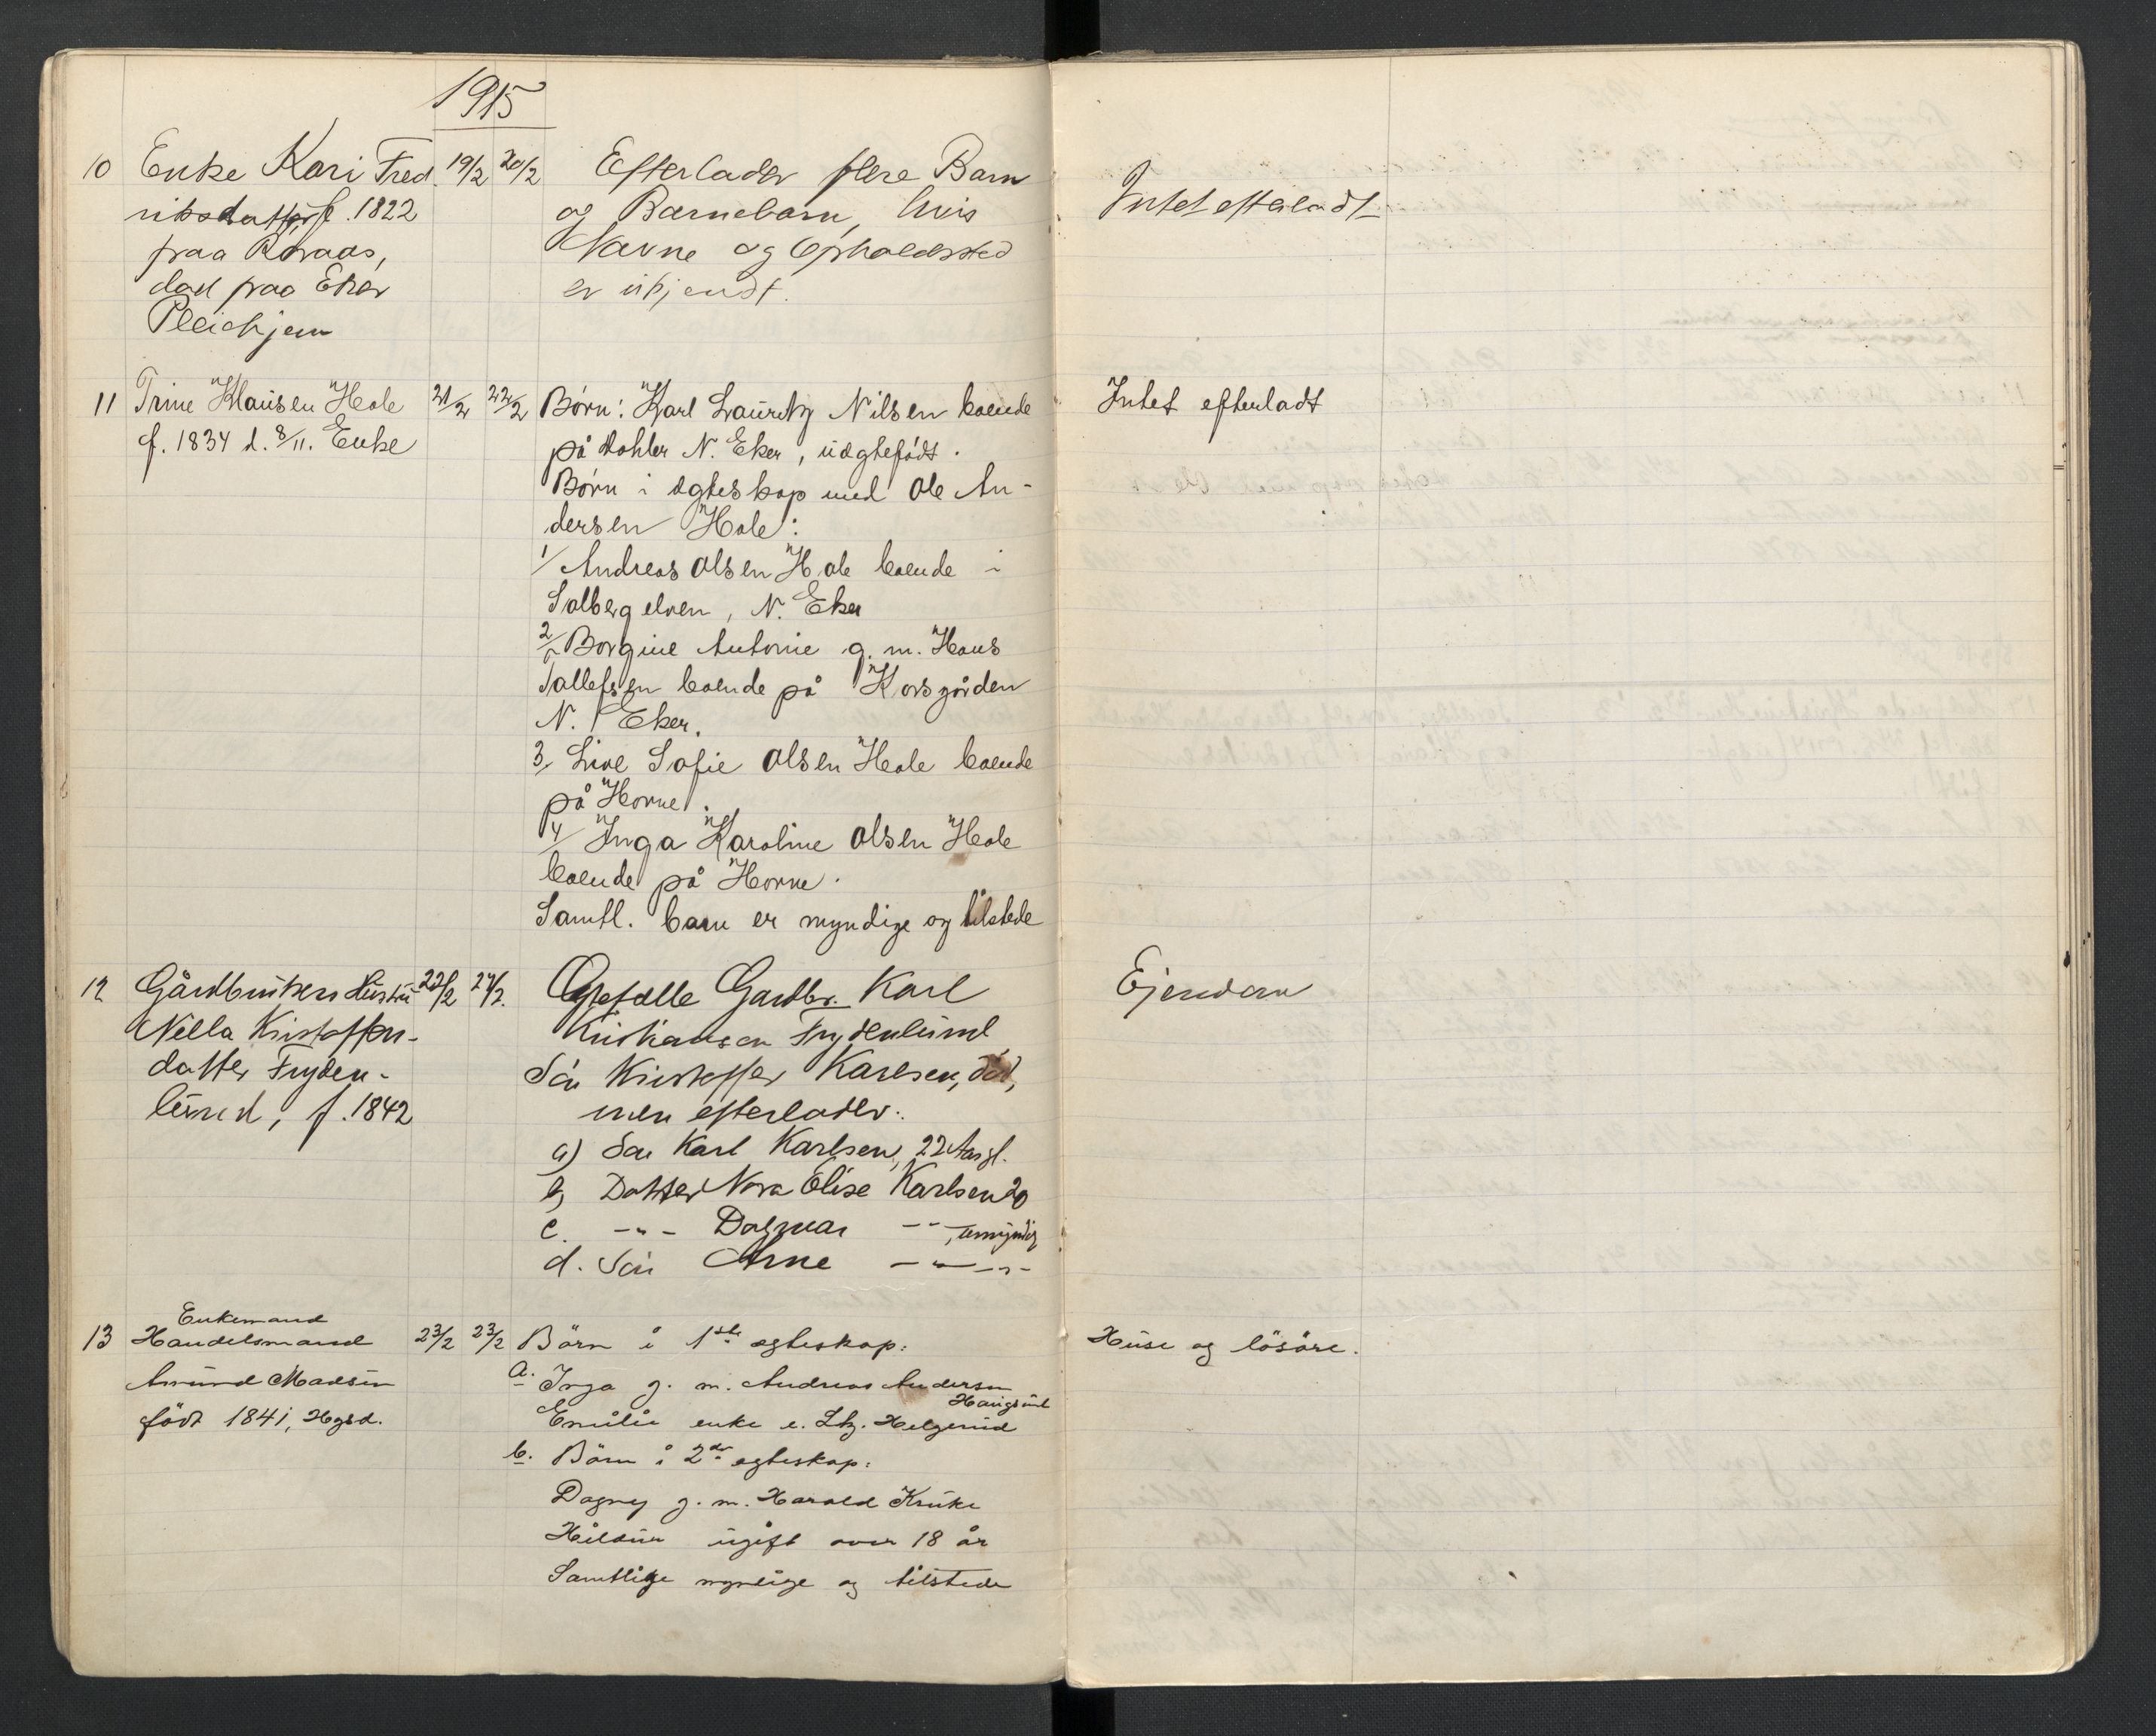 1915
10 Enke Kari Fred 19/2 20/2 Efterlader flere Barn
riksdatter f. 1822 og Barnebarn, hvis
fraa Røraas, Navne og Opholdssted
død paa Eker er ukjendt.
Pleiehjem
Intet efterladt
11 Trine Klausen Hole 21/2 22/2 Børn: Karl Lauritz Nilsen boende
f. 1834 d. 8/11. Enke på Dohler N. Eker, uægtefødt.
Børn i ægteskap med Ole An-
dersen Hole:
1/ Andreas Olsen Hole boende i
Solbergelven, N. Eker
2/ Borgine Antonie g. m. Hans
Tollefsen boende på Korsgården
N. Eker.
3/ Live Sofie Olsen Hole boende
på Horne.
4/ Inga Karoline Olsen Hole
boende på Horne.
Samtl. barn er myndige og tilstede
Intet efterladt
12 Gårdbrukers Hustru 22/2 24/2. Ægtefælle Gardbr. Karl
Nella Kristoffers- Kristiansen Frydenlund
datter Fryden- Søn Kristoffer Karlsen, død,
lund, f. 1842 men efterlader:
a) Søn Karl Karlsen, 22 Aar gl.
b) Datter Nora Elise Karlsen 20
c. -"- Dagmar -"-, umyndig
d. Søn Arne -"- -"-
Eiendom
Enkemand
13 Handelsmand 23/2 23/2 Børn i 1ste egteskap:
Amund Madsen a. Inga g. m. Andreas Andersen
Haugsund
født 1841, Hgsd. Emilie enke e. Ltz. Helgerud
b. Børn i 2det egteskap:
Dagny g. m. Harald Kruke
Hildur ugift over 18 år
Samtlige myndige og tilstede
Huse og løsøre.